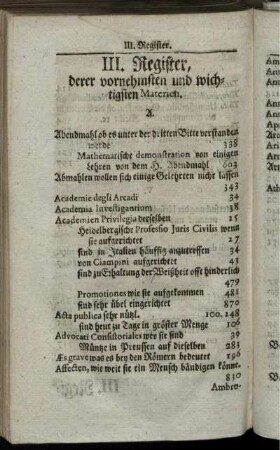 III. Register.
III. Register,
derer vornehmsten und wich-
tigsten Materien.
A.
Abendmahl ob es unter der dritten Bitte verstanden
werde 338
Mathematische demonstration von einigen
Lehren von dem H. Abendmahl 603
Abmahlen wollen sich einige Gelehrten nicht lassen
343
Academie degli Arcadi 34
Academia Investigantium 38
Academien Privilegia derselben 25
Heidelbergische Professio Juris Civilis wenn
sie aufgerichtet 27
sind in Italien häuffig anzutreffen 34
von Ciampini aufgerichtet 43
sind zu Erhaltung der Weißheit offt hinderlich
479
Promotiones wie sie aufgekommen 481
sind sehr übel eingerichtet 870
Acta publica sehr nützl. 100. 248
sind heut zu Tage in gröster Menge 106
Advocati Consistoriales wer sie sind 39
Müntze in Preussen auf dieselben 283
Æs grave was es bey den Römern bedeutet 196
Affecten, wie weit sie ein Mensch bändigen könne.
830
Ambro-